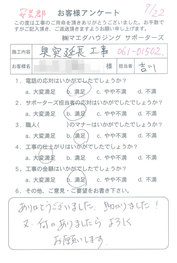 お客様アンケート
この度は工事のご用命を頂きありがとうございました。お手数
ですがご記入頂き、ご返送頂きますようお願い申し上げます。
㈱マエダハウジング サポーターズ
施工内容
工事 061-01502
お名前 様 担当者 吉川
1. 電話の応対はいかがでしたでしょうか？
A. 大変満足 B. 満足 C. やや不満 D. 不満
2. サポーターズ担当者の応対はいかがでしたでしょうか？
A. 大変満足 B. 満足 C. やや不満 D. 不満
3. 職人のマナーはいかがでしたでしょうか？
A. 大変満足 B. 満足 C. やや不満 D. 不満
4. 工事の仕上がりはいかがでしたでしょうか？
A. 大変満足 B. 満足 C. やや不満 D. 不満
5. 工事金額はいかがでしたでしょうか？
A. 大変満足 B. 満足 C. やや不満 D. 不満
6. その他、ご意見・ご要望をお書き下さい。
ありがとうございました。助かりました！
又、何かありましたら よろしく
お願いします。